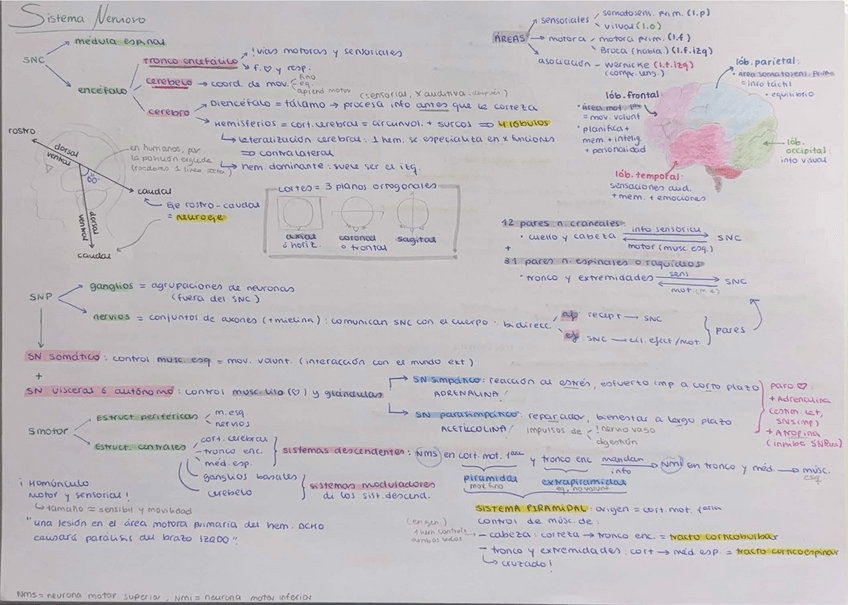 Sistema Nervoso
SNC
médula espinal
encéfalo
tronco encefálico
! vías motoras y sensoriales
f. ♡ y resp.
cerebelo → coord. de mov.
fino
eq.
aprend motor
cerebro
(sensorial, x auditiva después)
Diencéfalo = tálamo → procesa info antes que la corteza
Hemisferios = cort. cerebral = circunvol. + surcos ⇒ 4 lóbulos
lateralización cerebral: 1 hem. se especialita en x funciones
⇒ contralateral
hem. dominante: suele ser el izq.
ÁREAS
sensoriales
somatosen. prim. (l.p)
visual (l.o)
motora
motora prim. (l.f)
Broca (habla) (l.f.izq)
asociación – Wernicke (l.t.izq)
(compr. lens)
lób. parietal:
• área somatosens. prim.
= info táctil
• equilibrio
lób. frontal
• área mot.
= mov. volunt
• planifica +
mem + intelig
+ personalidad
lób. occipital:
info visual
lób. temporal:
sensaciones aud.
+ mem. + emociones
rostro
dorsal
ventral
en humanos, por
la posición erguida
caudal
dorsal
ventral
caudal
Eje rostro-caudal
= neuroeje
cortes = 3 planos ortogonales
axial
ó horiz.
coronal
o frontal
sagital
12 pares n. craneales
• cuello y cabeza
info sensorial
motor (musc. esq.)
SNC
+
31 pares n. espinales o raquídeos
• tronco y extremidades
sens
mot. (m.e)
SNC
SNP
ganglios = agrupaciones de neuronas
(fuera del SNC)
nervios = conjuntol de axones (+mielina): comunican SNC con el cuerpo • bidirecc.
af recept → SNC
ef SNC → cél. efect/mot.
pares
SN somático: control musc. esq = mov. volunt. (interacción con el mundo ext)
+
SN visceral ó autónomo: control musc. liso (♡) y glándulas
SN simpático: reacción al estrés, esfuerzo imp a corto plazo
ADRENALINA!
SN parasimpático: reparador, bienestar a largo plazo
ACETILCOLINA!
impulsos de
! nervio vago
digestión
paro ♡:
+ Adrenalina
(estim lat,
SNsimp)
+ Atropina
(inhibe SNPara)
Smotor
Estruct. periféricas
m. esq.
nervios
Estruct. centrales
cort. cerebral
tronco enc.
méd. esp.
ganglios basales
cerebelo
sistemas descendentes:
NMS en cort. mot. y tronco enc mandan info → NMi en tronco y méd. → músc. esq
sistemas moduladores
de los sist descend.
piramidal
mov fino
extrapiramidal
eq, no volunt
¡ Homúnculo
motor y sensorial !
tamaño = sensibil y movilidad
"una lesión en el área motora primaria del hem. DCHO
causará parálisis del brazo IZQDO".
SISTEMA PIRAMIDAL: origen = cort. mot.
control de músc. de:
(en gen.
1 hem controla
ambos lados)
– cabeza: corteza → tronco enc. = tracto corticobulbar
– tronco y extremidades: cort → méd esp. = tracto corticoespinal
cruzado!
Nms = neurona motor superior, Nmi = neurona motor inferior